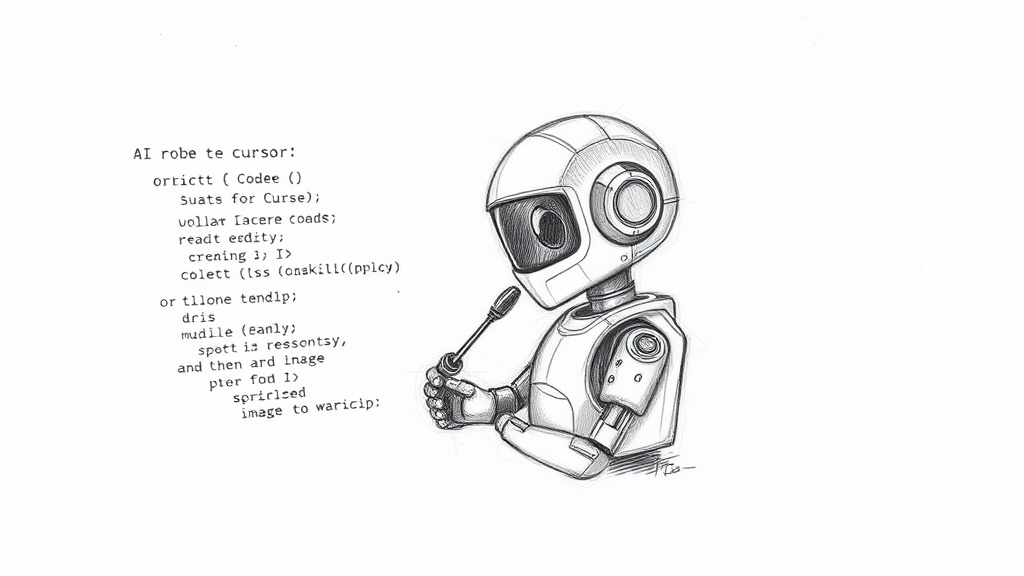 AI robe te cursor:
orticтt ( Codee ()
Suats for Curse);
vollar Iacere coads;
readt erdity;
crening 1; I>
colett (Iss (onskill((pplcy)
or tllone tendlp;
dris
mudile (eanly;
spott is ressontsy,
and then ard Inage
pter fod 1>
sprirlzed
image to waricip: